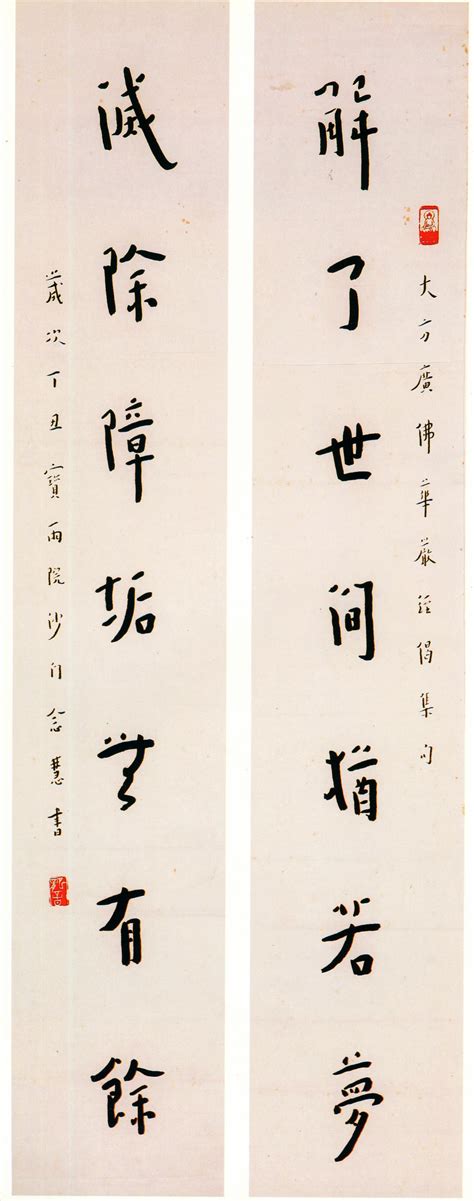 大方廣佛華嚴經偈集句
解了世間猶若夢
滅除障垢無有餘
歲次丁丑寶雨院沙門念慧書